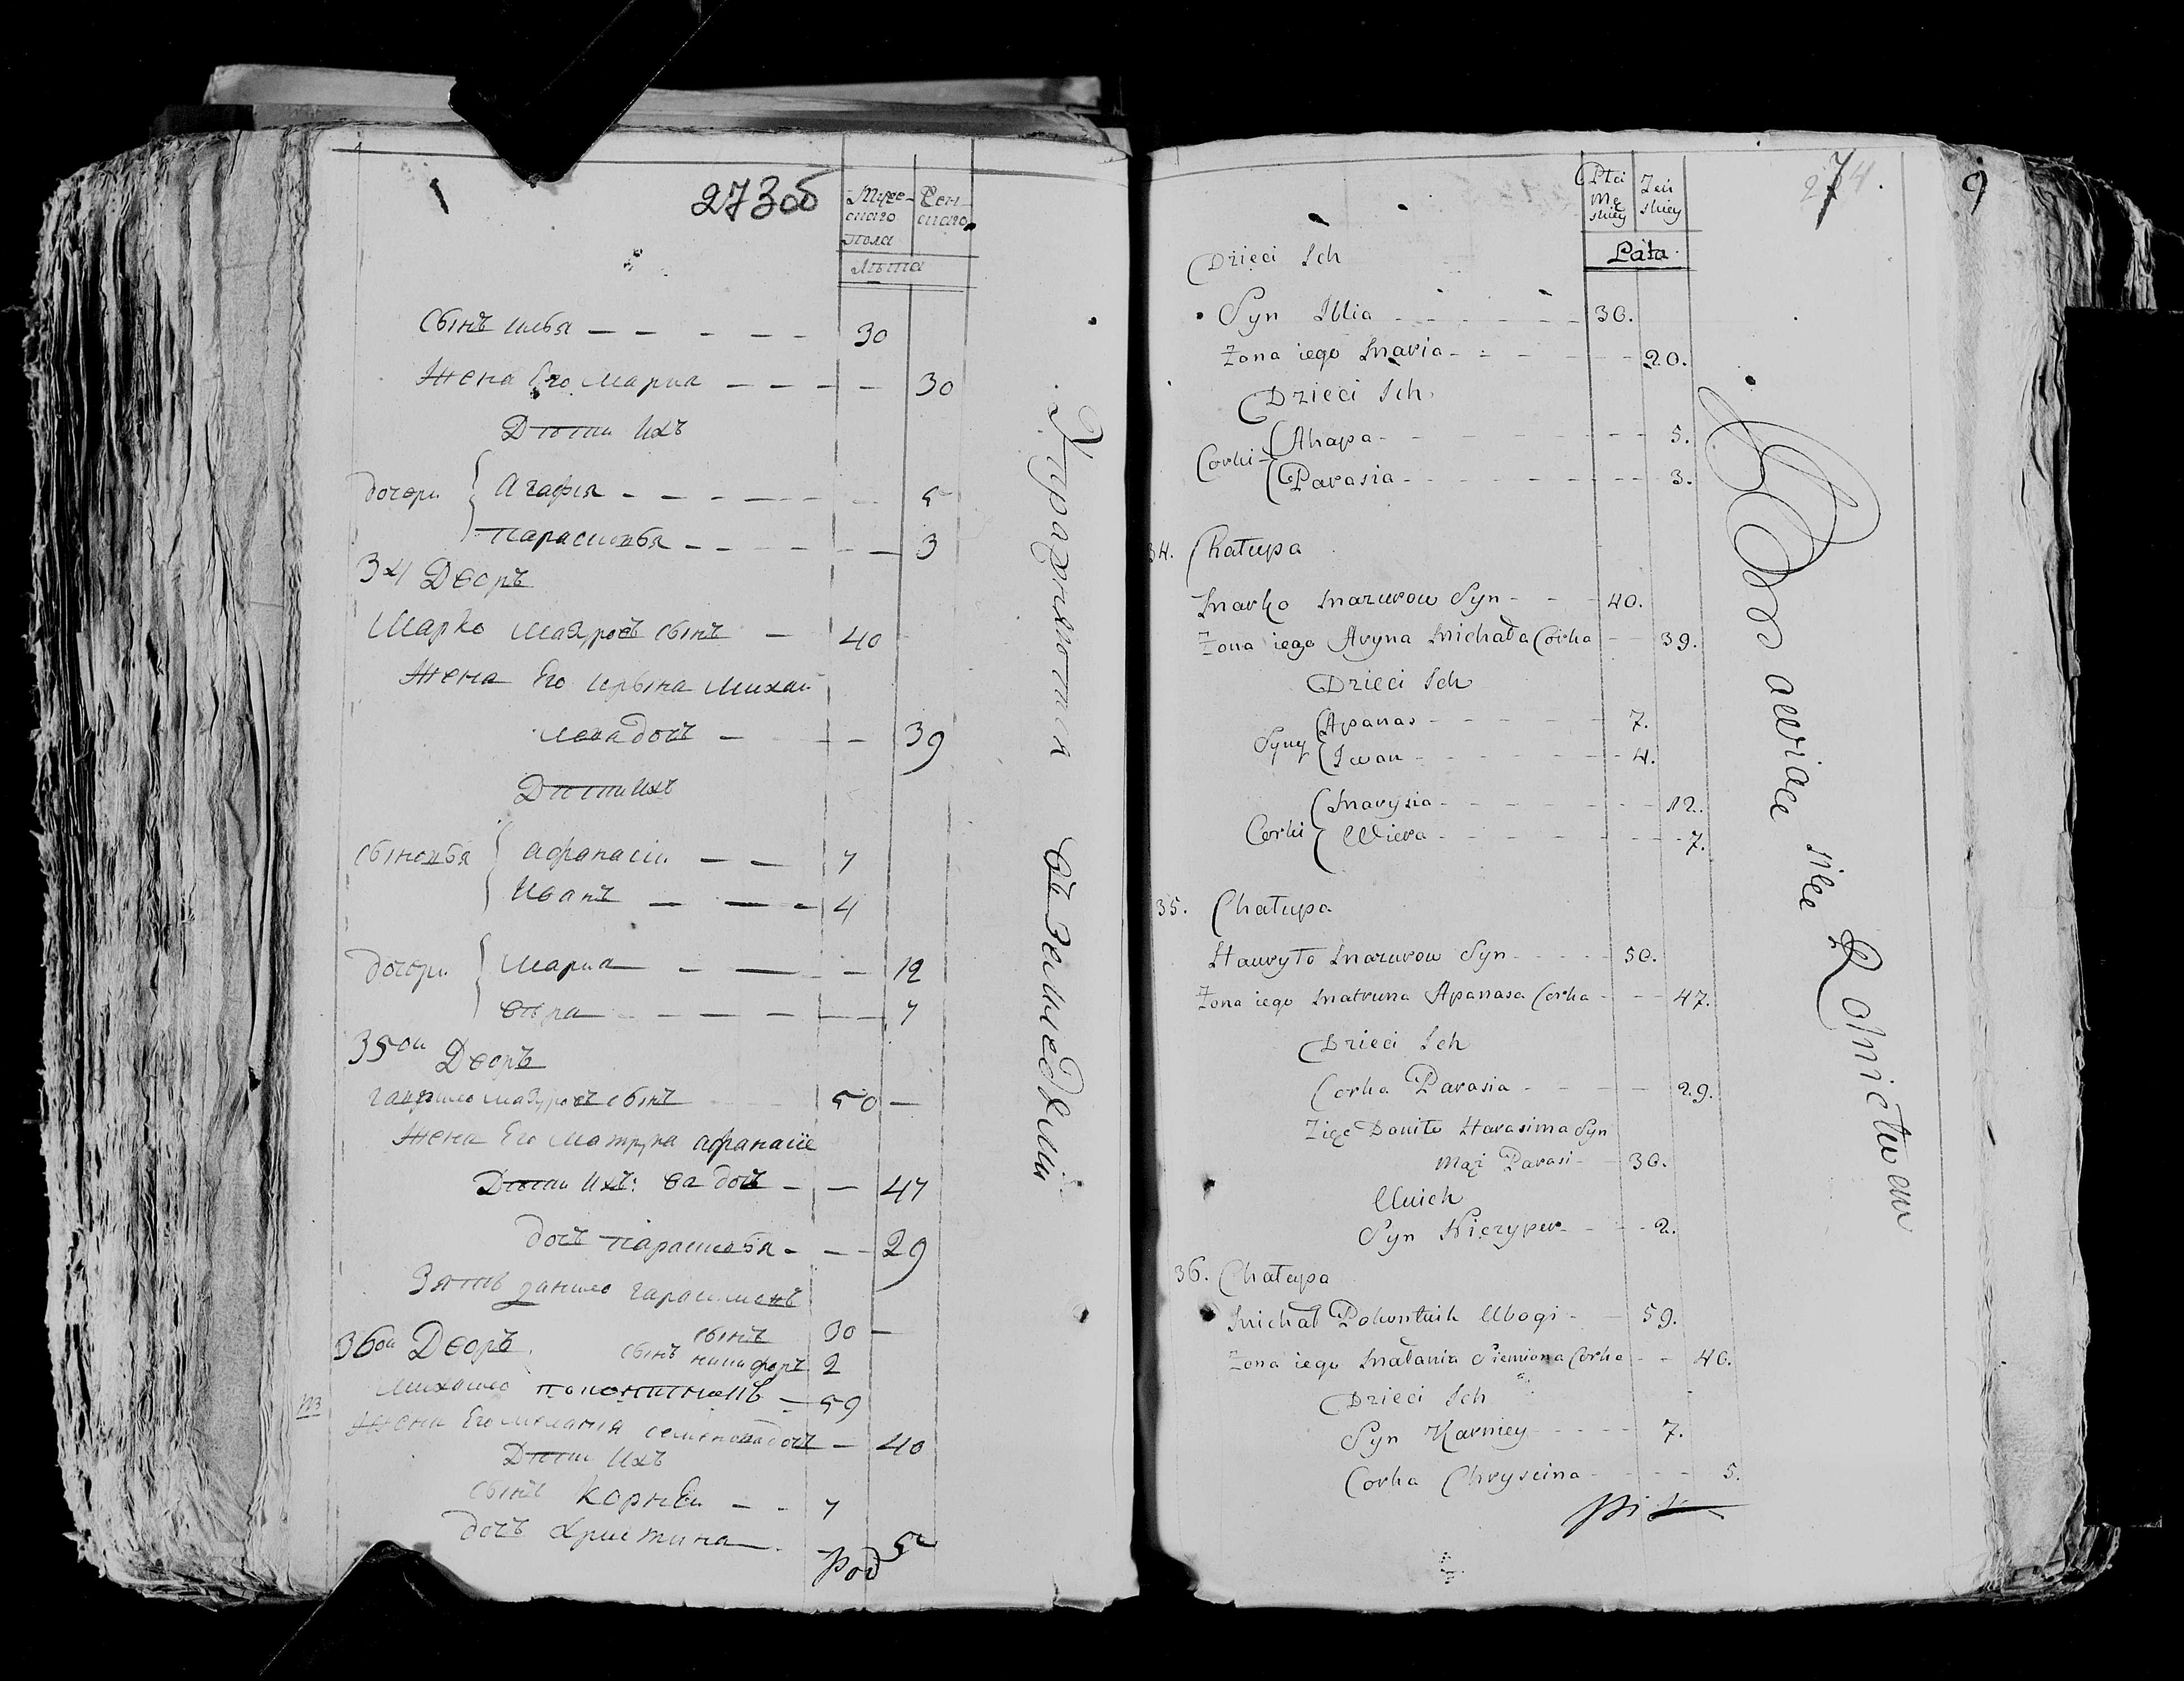 273об
Мужескаго Женскаго
пола
лѣта
Сынъ илья — — — — — 30
Жена Его мария — — — — 30
Дѣти ихъ
дочери { агафия — — — — — 5
парасковья — — — — — 3
34 Дворъ
Марко мазуровъ сынъ — 40
Жена Его ирына михаи
лова дочъ — — — 39
Дѣти ихъ
сыновья { афанасіи — — 7
Иванъ — — — 4
дочери { мариа — — — 12
вѣра — — — — — 7
35ои Дворъ
гаврило мазуровъ сынъ — 50 —
Жена Его матруна афанасіе
Дѣти ихъ: ва дочъ — — 47
дочъ парасковья — — — 29
Зять данило гарасимовъ
сынъ 30 —
36ои Дворъ сынъ никифоръ 2
михаило поконтникъ — 59
Жена Его мелания семенова дочъ — 40
Дѣти ихъ
сынъ корнѣи — — 7
дочъ христина — 5
род
Упражняются въ земледелии
Płci Męskiey Żeńskiey
Lata
274.
7
9
Dzieci Ich
Syn Illia - - - - - - 30.
Żona iego Maria - - - - - - 20.
Dzieci Ich
Corki { Ahapa - - - - - - - 5.
Parasia - - - - - - - 3.
34. Chałupa
Marko Mazurow Syn - - - 40.
Żona iego Aryna Michała Corka - - 39.
Dzieci Ich
Syny { Apanas - - - - - - 7.
Iwan - - - - - - - 4.
Corki { Marysia - - - - - - - 12.
Wiera - - - - - - - - 7.
35. Chałupa
Hauryło Mazurow Syn - - - - 50.
Żona iego Matruna Apanasa Corka - - - 47.
Dzieci Ich
Corka Parasia - - - - - 29.
Zięć Daniło Harasima Syn
Mąż Parasi - - 30.
U nich
Syn Niczyper - - - 2.
36. Chałupa
Michał Pokontnik Ubogi - - 59.
Żona iego Małania Siemiona Corka - - 40.
Dzieci Ich
Syn Karniey - - - - - 7.
Corka Chryscina - - - - 5.
Rolnictwem